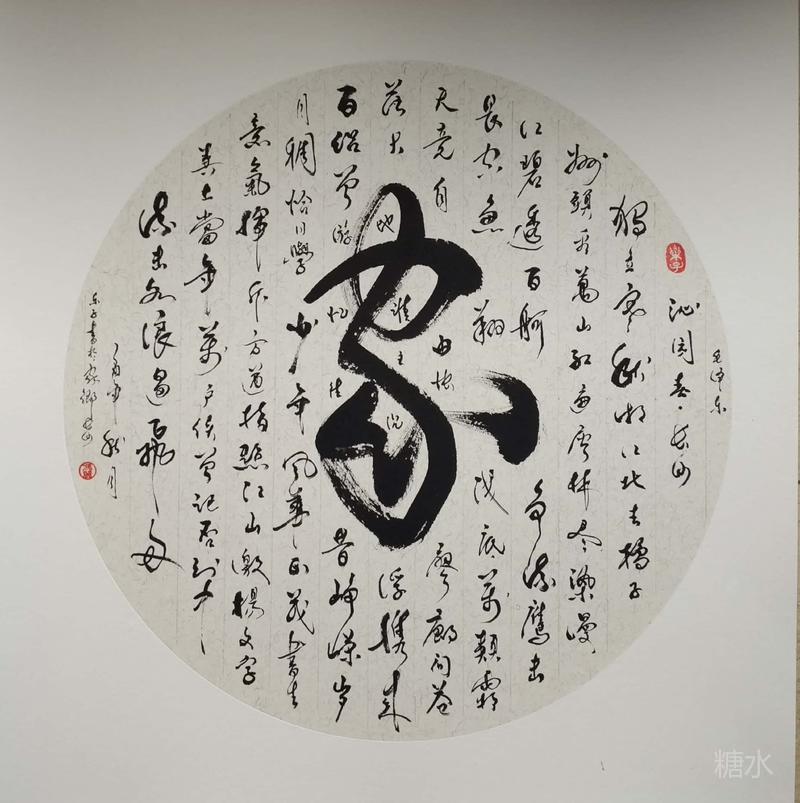 毛泽东
沁园春·长沙
獨立寒秋湘江北去橘子
洲頭看萬山红遍層林尽染漫
江碧透百舸争流鹰击
長空魚翔浅底萬類霜
天竞自由怅寥廓问苍
茫大地谁主沉浮携来
百侣曾游忆往昔峥嵘岁
月稠恰同學少年风華正茂書生
意氣揮斥方遒指點江山激揚文字
糞土當年萬户侯曾记否到中
流击水浪遏飞舟
秋月
東子書於家鄉
家
糖水